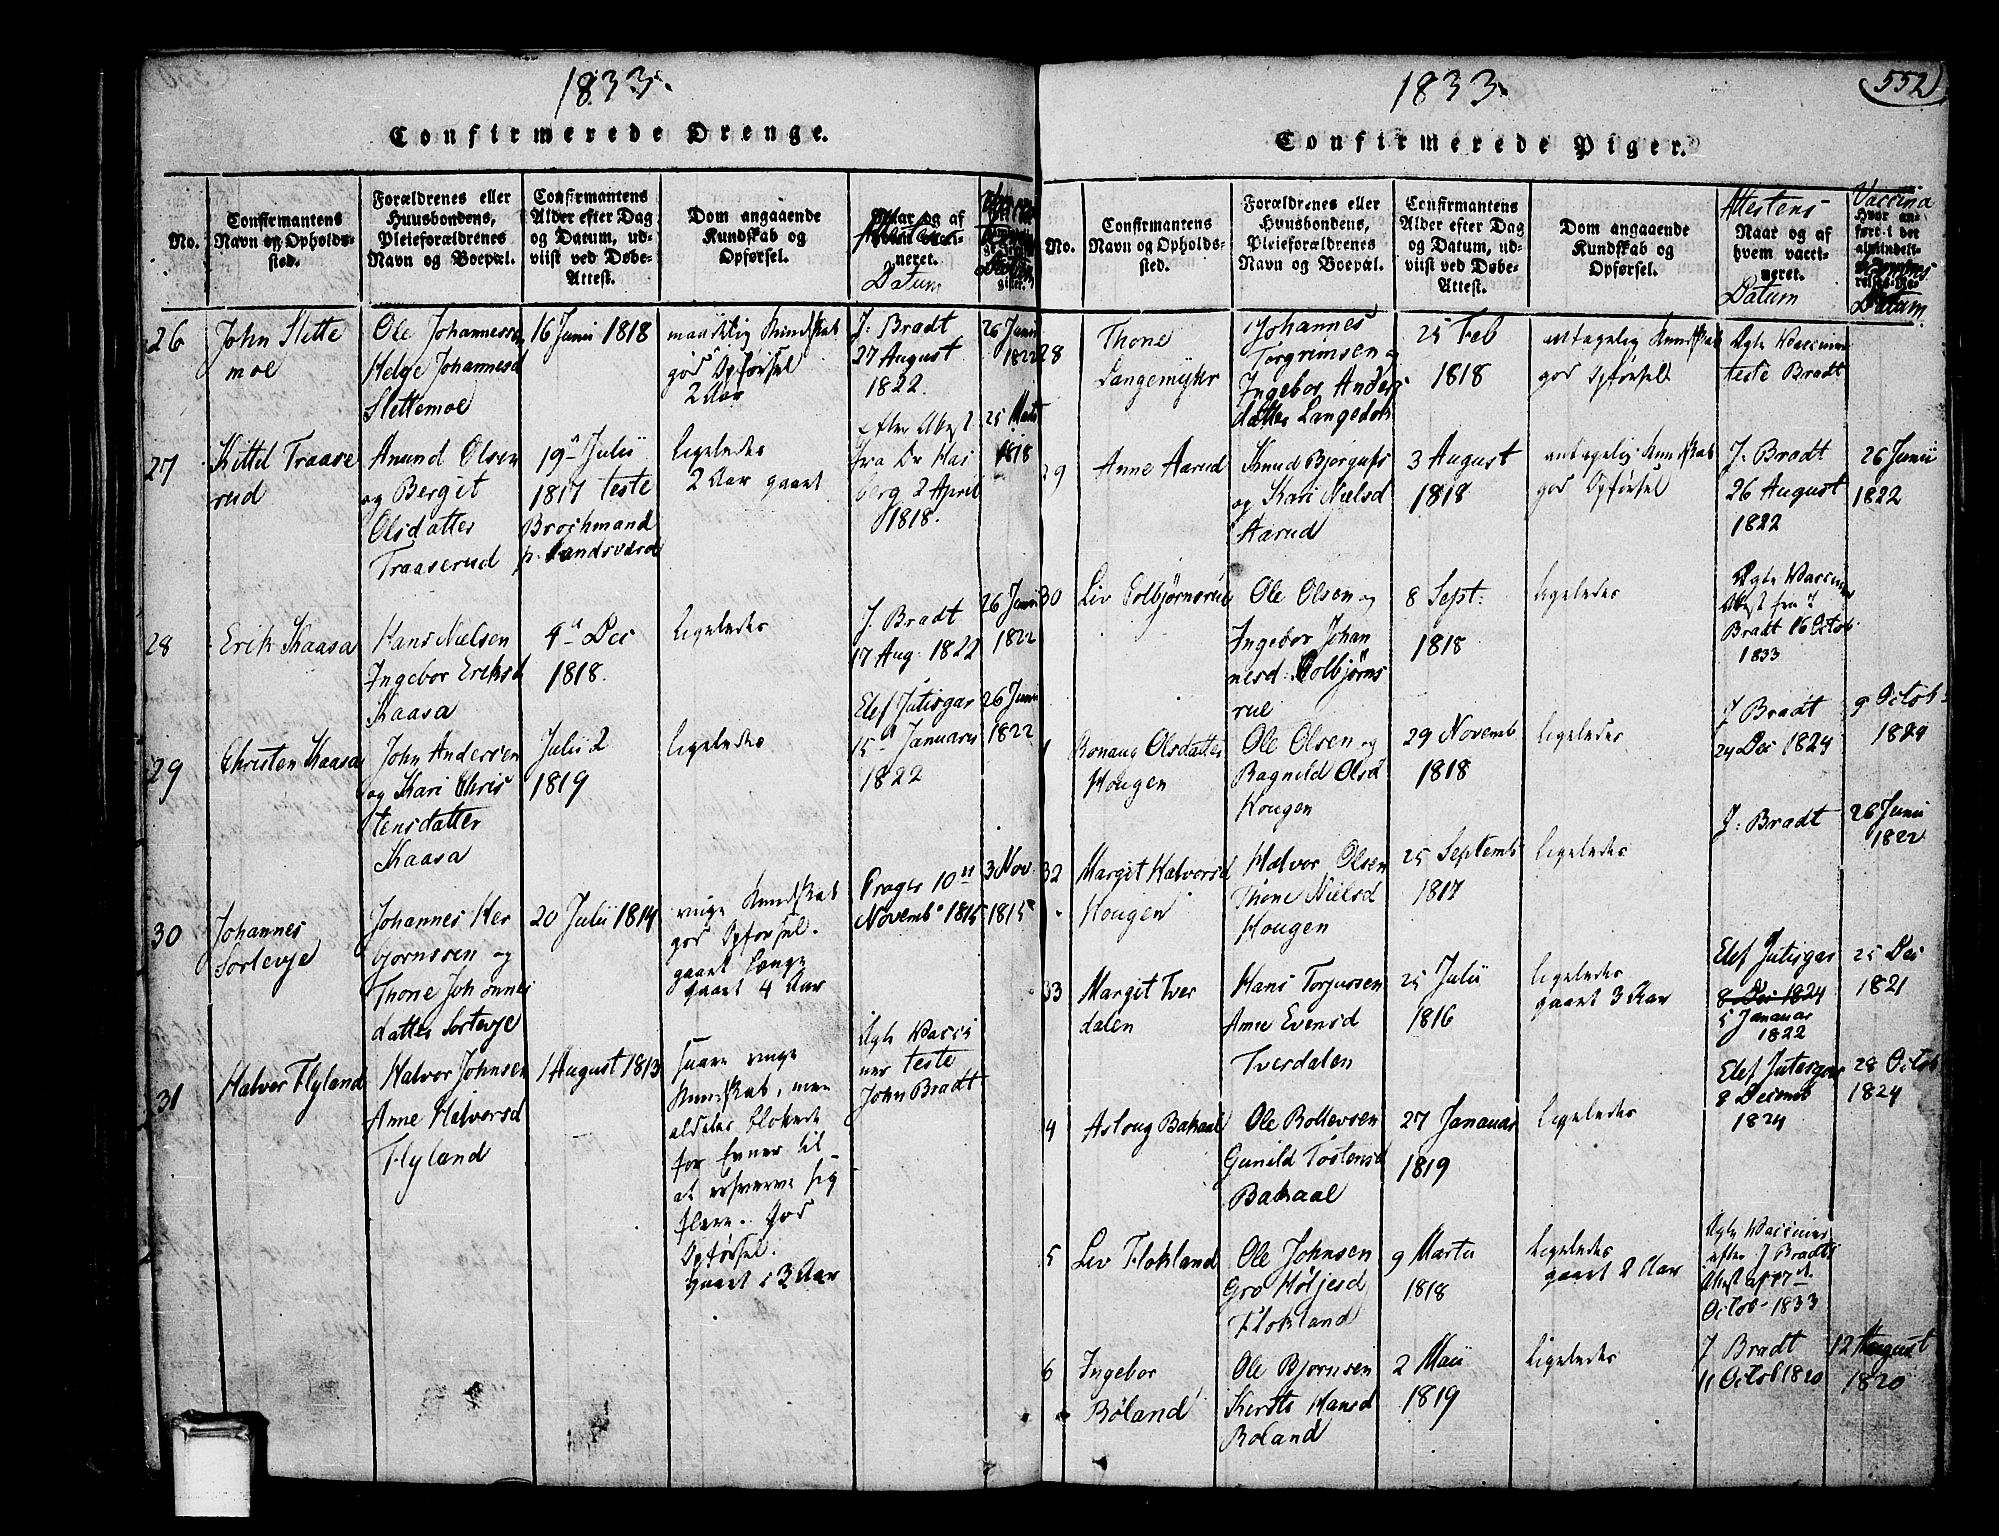 1833.
Confirmerede Drenge.
No.
Confirmantens
Navn og Opholds-
sted.
Forældrenes eller
Huusbondens,
Pleieforældrenes
Navn og Boepæl.
Confirmantens
Alder efter Dag
og Datum, ud-
viist ved Døbe-
Attest.
Dom angaaende
Kundskab og
Opførsel.
Naar og af
neret.
Datum
26
John Slette
moe
Ole Johannesse
Helge Johannesd
Slettemoe
16 Junii 1818
maadelig Kundskab
god Opførsel
2 Aar
J. Bradt
27 August
1822.
26 Junii
1822
27
Kittel Traase
rud
Anund Olsen
og Bergit
Olsdatter
Traaserud
19 Julii
1817 teste
Brochmand
p. Sandsværd
ligeledes
2 Aar gaaet
efter Attest
fra Dr Has
berg 2 April
1818.
25 Marts
1818
28
Erik Kaasa
Hans Nielsen
Ingebor Eriksd
Kaasa
4 Dec
1818.
ligeledes
J. Bradt
17 Aug. 1822
26 Junii
1822
29
Christen Kaasa
John Andersen
og Kari Chris
tensdatter
Kaasa
Julii 2
1819
ligeledes
Elef Jutisgar
15 Januari
1822
26 Junii
1822
30
Johannes
Sortevje
Johannes Her
bjornssen og
Thone Johannes
datter Sortevje
20 Julii 1814
ringe Kundskab
god Opførsel.
gaaet længe
gaaet 4 Aar
Prager 10
Novemb 1815
3 Nov
1815
31
Halvor Flyland
Halvor Johnsen
Anne Halvorsd
Flyland
1 August 1813
svare ringe
Kundskab, men
aldeles blottet
for Evner til
at erhverve sig
flere. God
Opførsel.
gaaet i 3 Aar
Ægte Vacci
ner teste
John Bradt
1833.
552
Confirmerede Piger.
No.
Confirmantens
Navn og Opholds-
sted.
Forældrenes eller
Huusbondens,
Pleieforældrenes
Navn og Boepæl.
Confirmantens
Alder efter Dag
og Datum, ud-
viist ved Døbe-
Attest.
Dom angaaende
Kundskab og
Opførsel.
Attestens
Naar og af
hvem vacci-
neret.
Datum
Vaccina
Hvor an-
ført i det
almindeli-
Datum
28
Thone
Langemyhr
Johannes
Torgrimsen og
Ingebor Anders
datter Langedok
25 Feb
1818
antagelig Kundskab
god Opførsel
Ægte Vaccine
teste Bradt
29
Anne Aarud
Knud Bjorgufs
og Kari Nielsd
Aarud
3 August
1818
antagelig Kundskab
god Opførsel
J. Bradt
26 August
1822
26 Junii
1822
30
Liv Tolbjørnsrue
Ole Olsen og
Ingebor Johan
nesd. Tolbjørns
rue
8 Sept:
1818
ligeledes
Ægte Vaccine
Attest fra J
Bradt 16 Octob
1833
1
Ronaug Olsdatter
Hougen
Ole Olsen og
Ragnild Olsd
Hougen
29 Novemb
1818
ligeledes
J Bradt
24 Dec 1824
9 Octob
1824
32
Margit Halvorsd
Hougen
Halvor Olsen
Thone Nielsd
Hougen
25 Septemb
1817
ligeledes
J. Bradt
26 Junii
1822
33
Margit Tver
dalen
Hans Torjussen
Anne Evensd
Tverdalen
25 Julii
1816
ligeledes
gaaet 3 Aar
Elef Jutisgar
8 Dec 1824
5 Januar
1822
25 Dec
1821
4
Asloug Bakaal
Ole Rollevsen
Gunild Tostensd
Bakaal
27 Januar
1819
ligeledes
Elef Jutisgar
8 Decemb
1824
28 Octob
1824
5
Liv Flokland
Ole Johnsen
Gro Høljesd
Flokland
9 Marts
1818
ligeledes
gaaet 2 Aar
Ægte Vacciner
efter J Bradts
Attest af 17
Octob 1833
6
Ingebor
Bøland
Ole Bjornsen
Kirsti Hansd
Boland
2 Maii
1819
ligeledes
J Bradt
11 Octob 1820
12 August
1820